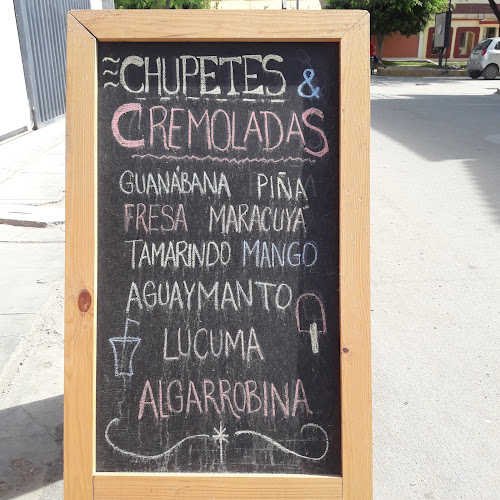 CHUPETES &
CREMOLADAS
GUANÁBANA PIÑA
FRESA MARACUYÁ
TAMARINDO MANGO
AGUAYMANTO
LÚCUMA
ALGARROBINA